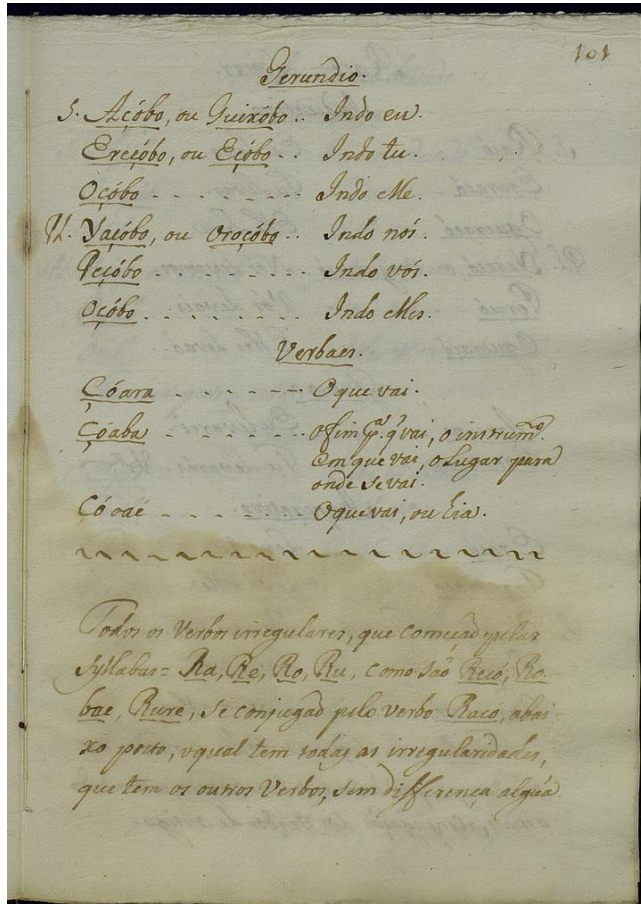 101
Gerundio.
S. Açóbo, ou Guixobo.. Indo eu.
Ereçóbo, ou Eçóbo.. Indo tu.
Oçóbo - - - - - - - - Indo elle.
Pl. Yaçóbo, ou oroçóbo.. Indo nós.
Peçóbo - - - - - - - - Indo vós.
Oçóbo - - - - - - - - Indo elles.
Verbaes.
Çóara - - - - - - - - O que vai.
Çóaba - - - - - - - - o fim pª. q̃ vai, o instrumto.
em que vai, o lugar para
onde se vai.
Çó oaé - - - - - - - - O que vai, ou hia.
Todos os Verbos irregulares, que começaõ pelas
syllabas = Ra, Re, Ro, Ru, como saõ Recó, Ro-
bae, Rure, se conjugaõ pelo verbo Raço, abai-
xo posto, o qual tem todas as irregularidades,
que tem os outros Verbos, sem differença algũa